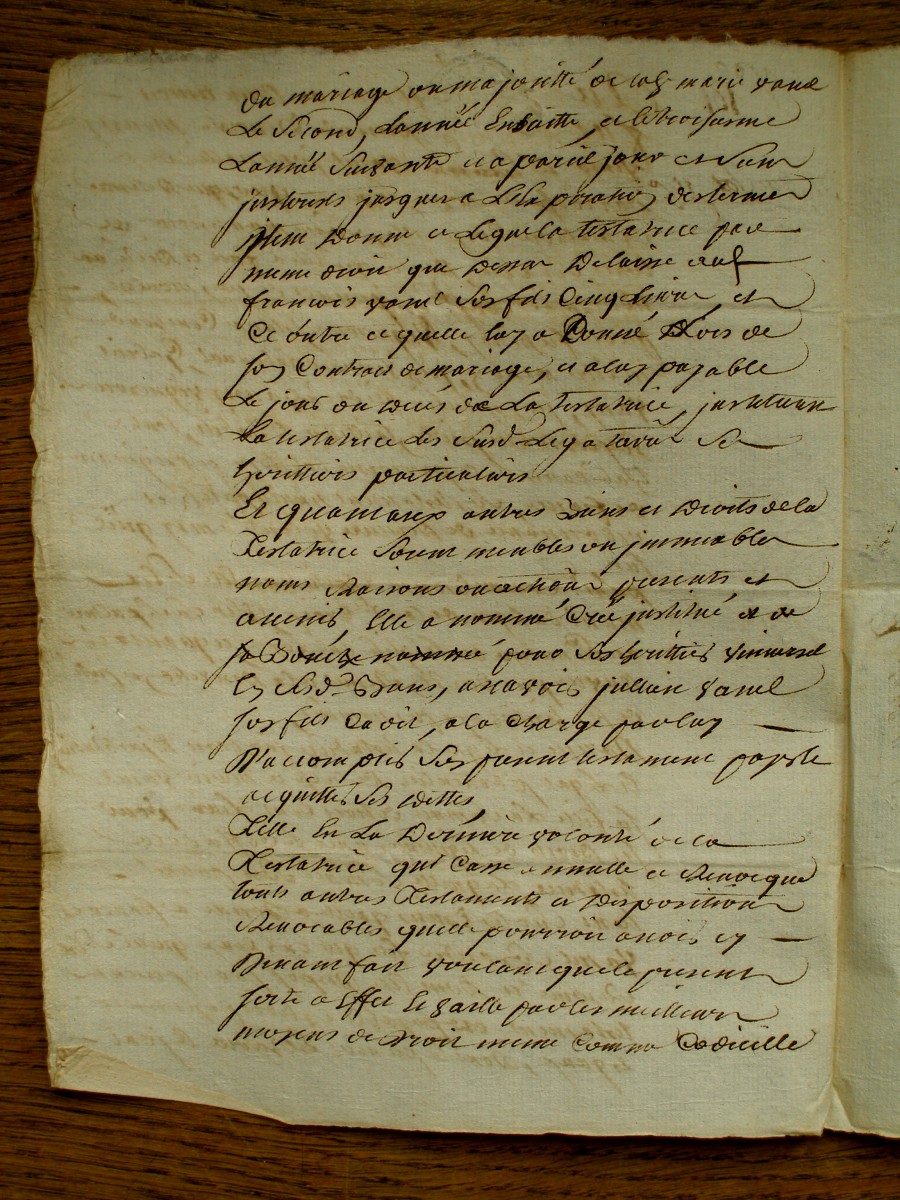 du mariage ou majoritté de lad marie vanel
Le second, Lannée Ensuitte, et le troisieme
Lannée suivante et a pareil jour et sans
jnterests jusques a L'Exspiration des termes
jtem Donne et Legue la testatrice par
meme droit que dessus Delaisse aud
francois vanel son fils Cinq Livres et
Ce outre ce quelle luy a Donné Lors de
son Contract de mariage, et a luy payable
Le jour du deces de La testatrice, jnstituant
La testatrice Les susd Legataires ses
herittiers particuliers
Et quant aux autres biens et Droits de la
Testatrice soient meubles ou jmmeubles
noms Raisons ou actions presents et
avenir, Elle a nommé Créé jnstitué et de
sa Bouche nommé pour ses herittiers universel
En sesd. Biens, a scavoir jullien vanel
son fils Cadit, a la Charge par luy
D'accomplir son present testament payer
acquitter ses dettes
Telle Est La Derniere volonté de la
Testatrice qui Casse annulle et Revocque
touts autres Testaments et Dispositions
Revocables quelle pourroit avoir cy
Devant fait voulant que le present
sorte a Effet Et vaille par les meilleurs
moyens de droit meme Comme Codicille